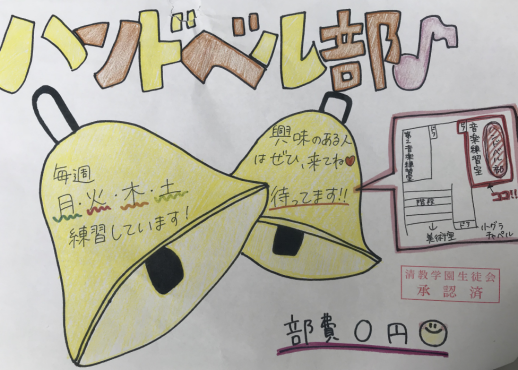 ハンドベル部
毎週
月・火・木・土
練習しています!
興味のある人
はぜひ、来てね
待ってます!!
第二音楽練習室
ドア
音楽練習室
ハンドベル部
ココ!!
階段
ドア
美術室
小グラ
チャペル
清教学園生徒会
承認済
部費0円